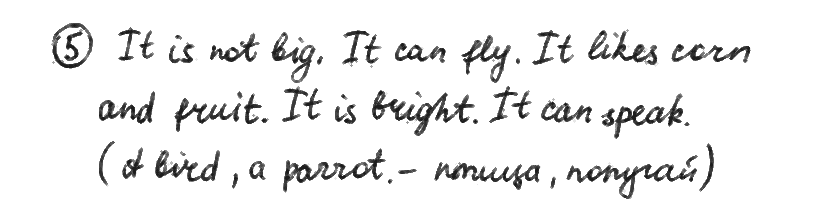 ⑤ It is not big. It can fly. It likes corn
and fruit. It is bright. It can speak.
(A bird, a parrot. – птица, попугай)